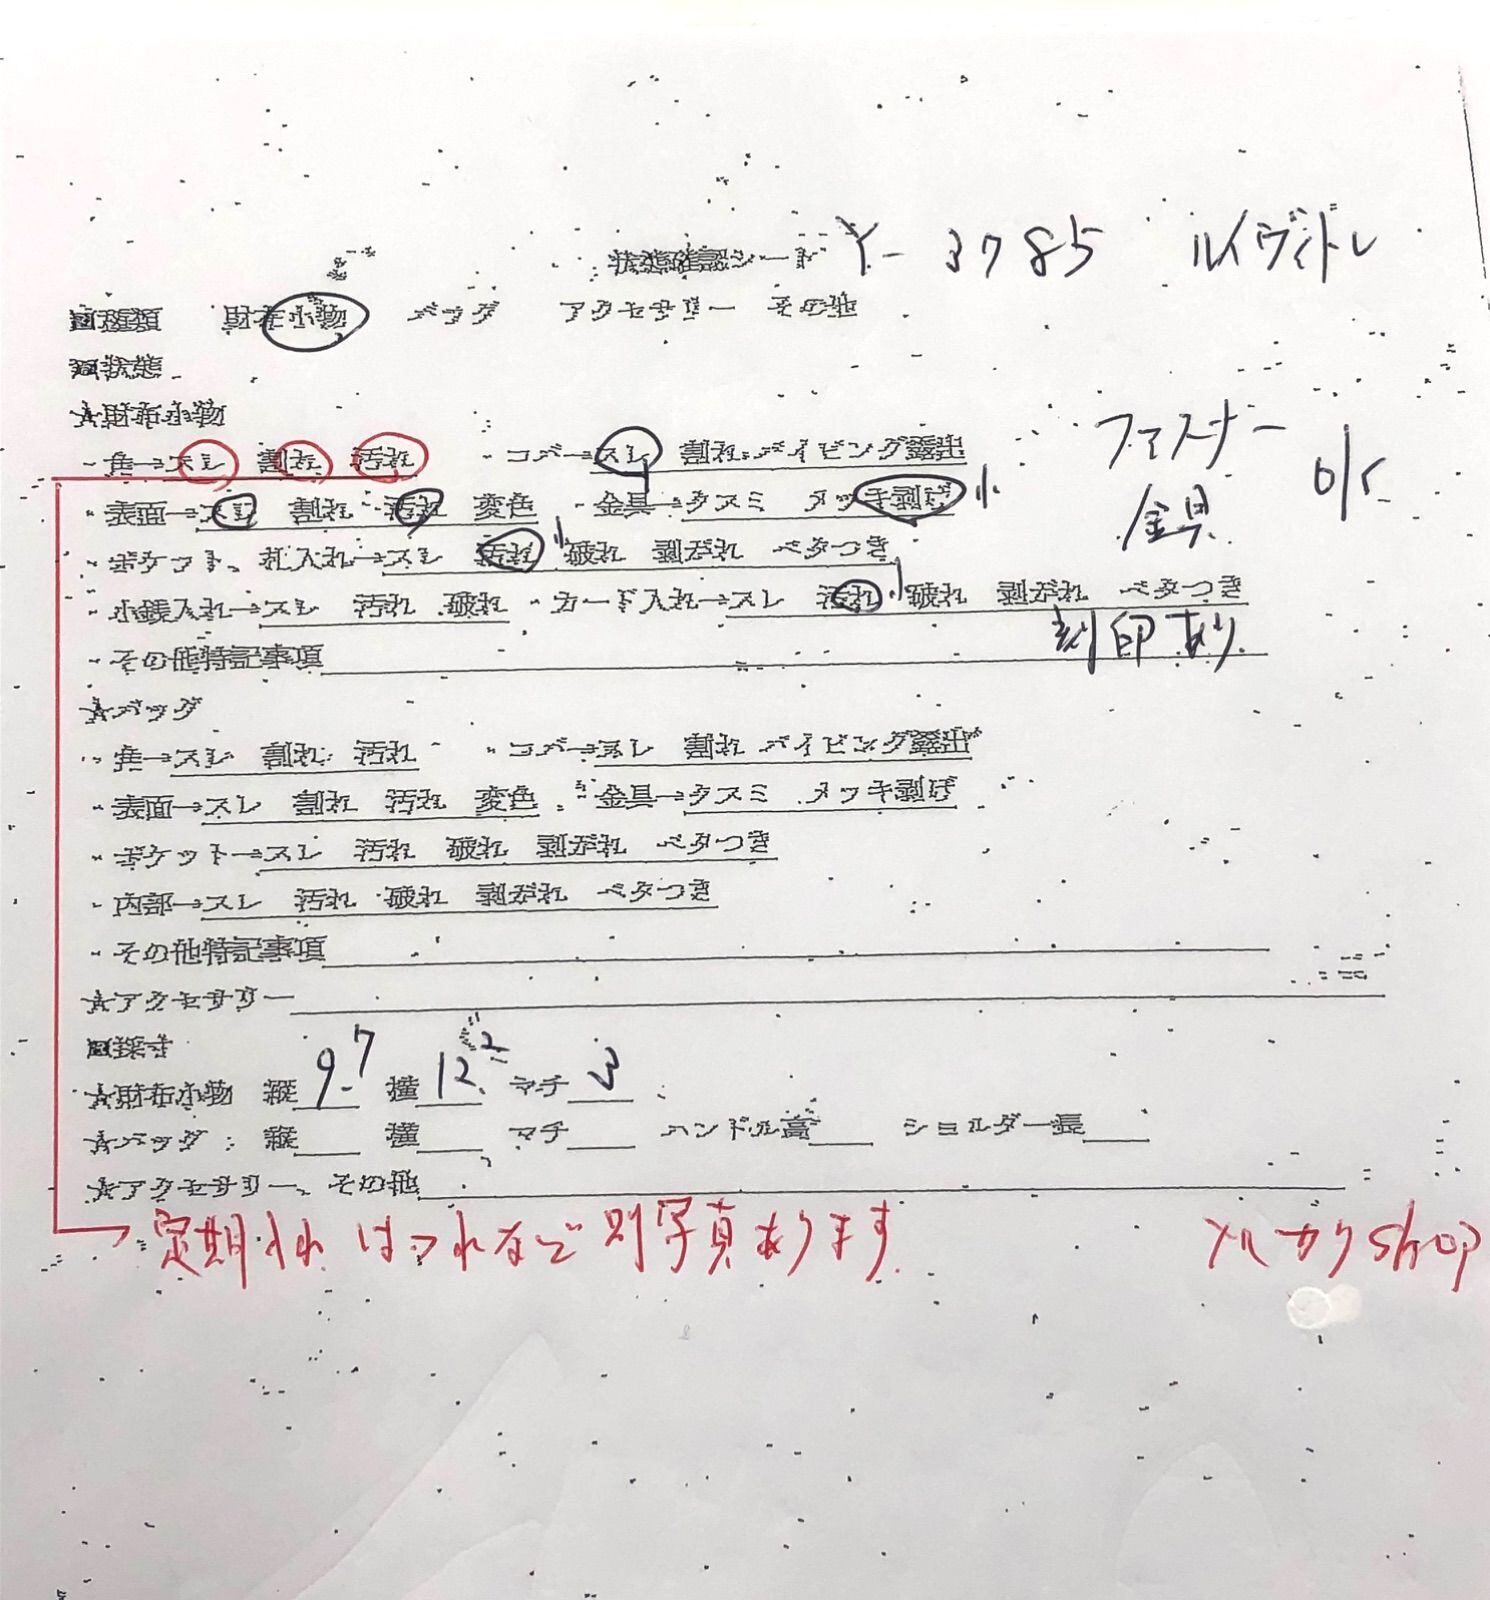 状態確認シート Y-3785 ルイヴィトン
■種類 財布小物 バッグ アクセサリー その他
■状態
☆財布小物
・角→スレ 割れ 汚れ ・コバ→スレ 割れ パイピング露出 ファスナー
・表面→スレ 割れ 汚れ 変色 ・金具→クスミ メッキ剥げ 小 金具 OK
・ポケット、札入れ→スレ 汚れ 小 破れ 剥がれ ベタつき
・小銭入れ→スレ 汚れ 破れ ・カード入れ→スレ 汚れ 小 破れ 剥がれ ベタつき
・その他特記事項 刻印あり
☆バッグ
・角→スレ 割れ 汚れ ・コバ→スレ 割れ パイピング露出
・表面→スレ 割れ 汚れ 変色 ・金具→クスミ メッキ剥げ
・ポケット→スレ 汚れ 破れ 剥がれ ベタつき
・内部→スレ 汚れ 破れ 剥がれ ベタつき
・その他特記事項
☆アクセサリー
■採寸
☆財布小物 縦 9.7 横 12.2 マチ 3
☆バッグ:縦 横 マチ ハンドル高 ショルダー長
☆アクセサリー、その他
→定期入れ ほつれなど別写真あります
メルカリshop